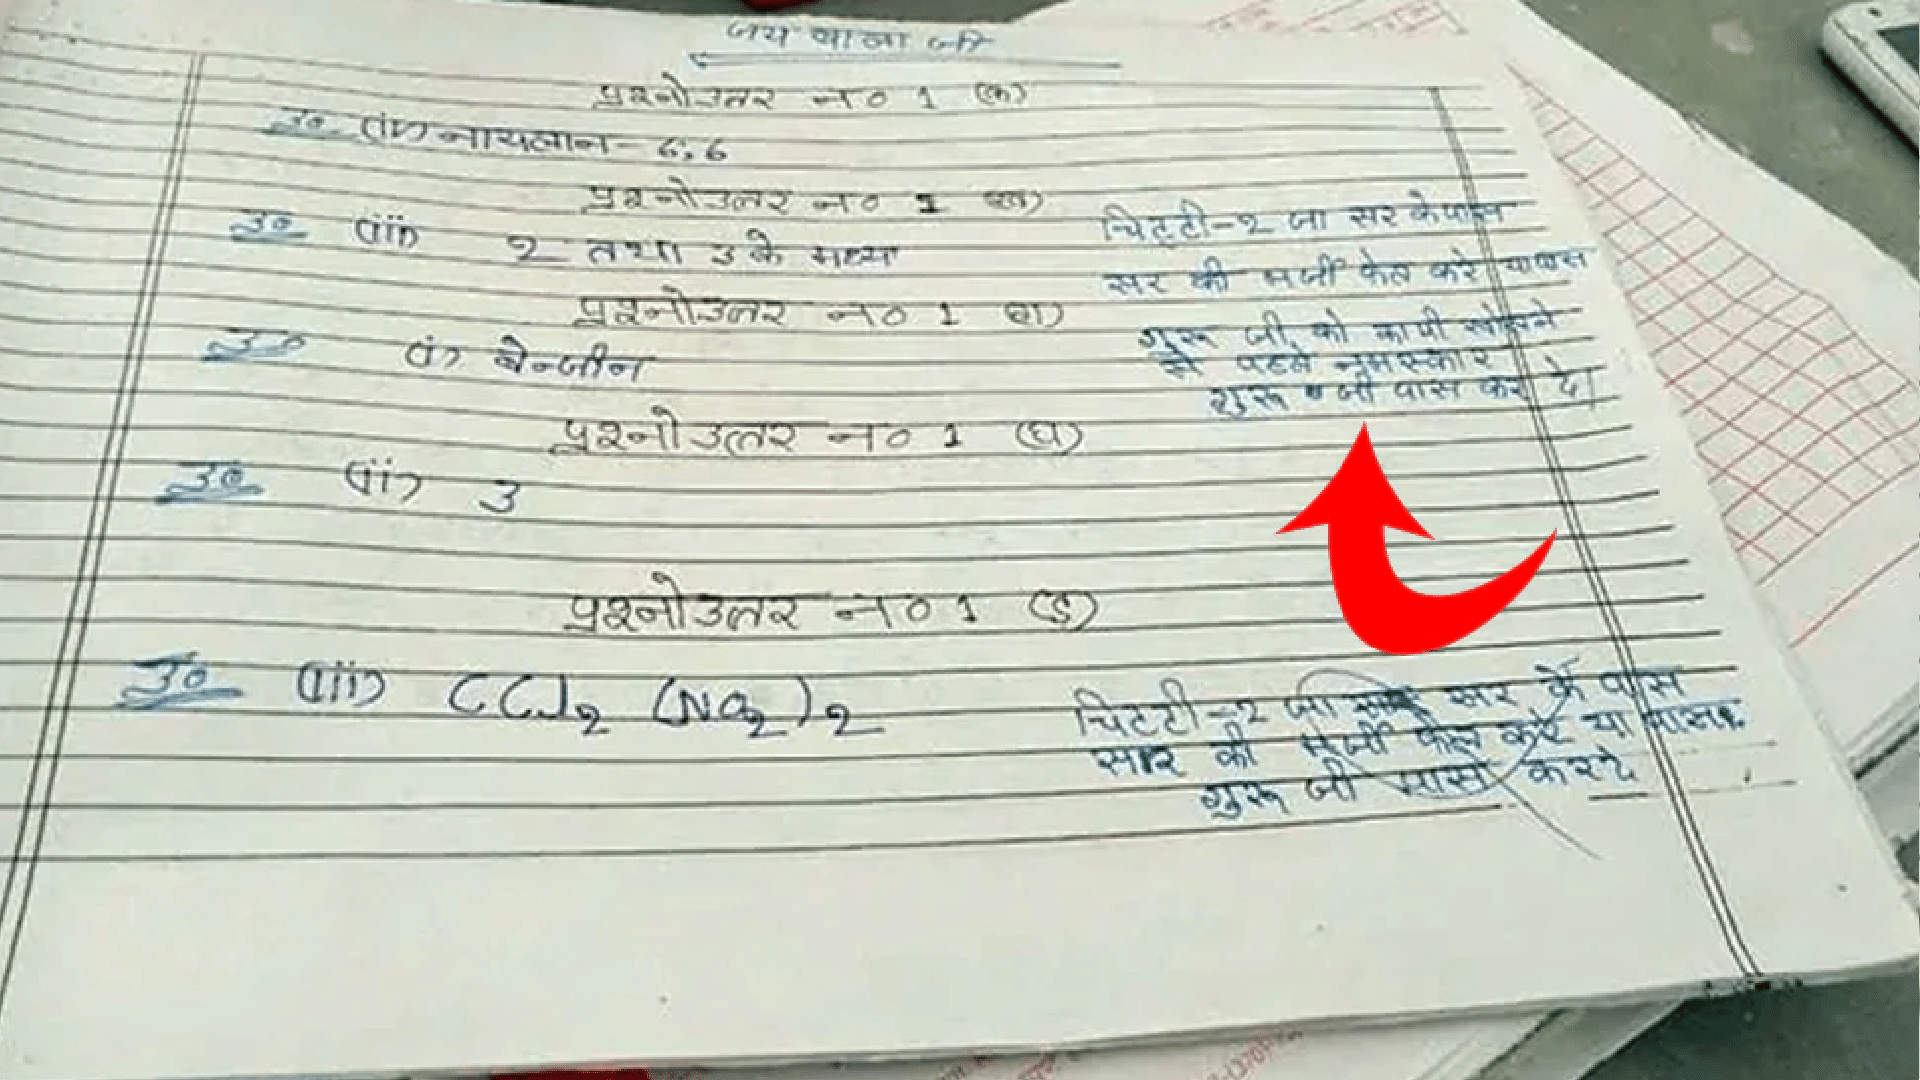 जय बाला जी
प्रश्नोउत्तर न० 1 (क)
उ० (iv) नायलान - 6,6
प्रश्नोउत्तर न० 1 (ख)
उ० (iii) 2 तथा 3 के मध्य
चिट्टी-2 जा सर के पास
सर की मर्जी फेल करे या पास
प्रश्नोउत्तर न० 1 (ग)
गुरू जी को कापी खोलने
से पहले नमस्कार
गुरू जी पास कर दे।
उ० (i) बेन्जीन
प्रश्नोउत्तर न० 1 (घ)
उ० (ii) 3
प्रश्नोउत्तर न० 1 (ड)
उ० (iii) CCl2 (NO2)2
चिट्टी-2 जा सर के पास
सर की मर्जी फेल करे या पास
गुरू जी पास करदे